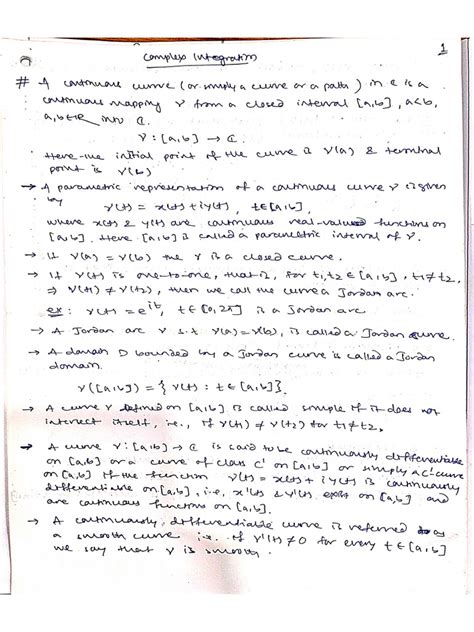 1
Complex Integration
# A continuous curve (or simply a curve or a path) in ℂ is a
continuous mapping γ from a closed interval [a,b], a<b,
a,b∈ℝ into ℂ.
γ : [a,b] → ℂ.
Here the initial point of the curve is γ(a) & terminal
point is γ(b)
→ A parametric representation of a continuous curve γ is given
by
γ(t) = x(t) + iy(t), t∈[a,b],
where x(t) & y(t) are continuous real-valued functions on
[a,b]. Here [a,b] is called a parametric interval of γ.
→ If γ(a) = γ(b) the γ is a closed curve.
→ If γ(t) is one-to-one, that is, for t₁,t₂ ∈ [a,b], t₁≠t₂,
⇒ γ(t₁) ≠ γ(t₂), then we call the curve a Jordan arc.
ex: γ(t) = e^{it}, t∈[0,2π] is a Jordan arc
→ A Jordan arc γ s.t γ(a)=γ(b), is called a Jordan curve.
→ A domain D bounded by a Jordan curve is called a Jordan
domain.
γ([a,b]) = {γ(t) : t∈[a,b]}.
→ A curve γ defined on [a,b] is called simple if it does not
intersect itself, i.e., if γ(t₁) ≠ γ(t₂) for t₁≠t₂.
→ A curve γ:[a,b] → ℂ is said to be continuously differentiable
on [a,b] or a curve of class C' on [a,b] or simply a C' curve
on [a,b] if the function γ(t) = x(t) + iy(t) is continuously
differentiable on [a,b], i.e, x'(t) & y'(t) exist on [a,b] and
are continuous functions on [a,b].
→ A continuously, differentiable curve is referred to as
a smooth curve i.e. if γ'(t)≠0 for every t∈[a,b]
we say that γ is smooth.